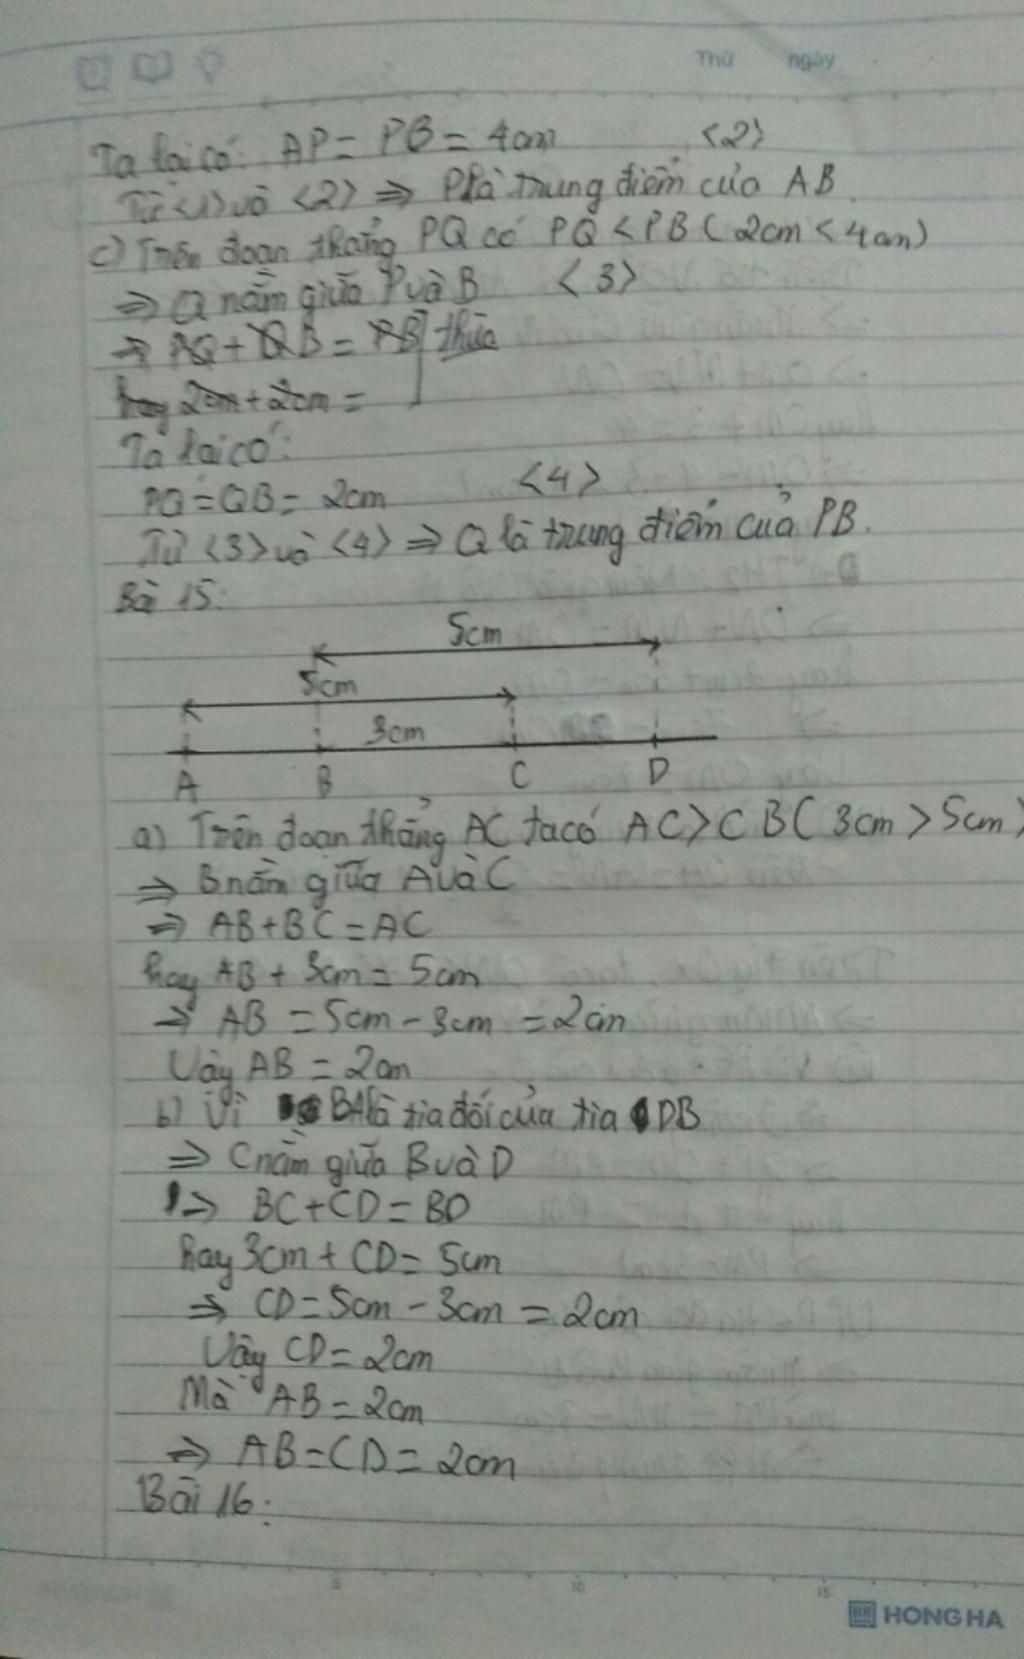 Thứ ngày
Ta lại có: AP = PB = 4cm <2>
Từ <1> và <2> => P là trung điểm của AB
c) Trên đoạn thẳng PQ có PQ < PB ( 2cm < 4cm )
=> Q nằm giữa P và B <3>
=> PQ + QB = PB thừa
hay 2cm + 2cm =
Ta lại có:
PQ = QB = 2cm <4>
Từ <3> và <4> => Q là trung điểm của PB.
Bài 15:
5cm
5cm
3cm
A B C D
a) Trên đoạn thẳng AC ta có AC > CB ( 3cm > 5cm )
=> B nằm giữa A và C
=> AB + BC = AC
hay AB + 3cm = 5cm
=> AB = 5cm - 3cm = 2cm
Vậy AB = 2cm
b) Vì BA là tia đối của tia DB
=> C nằm giữa B và D
=> BC + CD = BD
hay 3cm + CD = 5cm
=> CD = 5cm - 3cm = 2cm
Vậy CD = 2cm
Mà AB = 2cm
=> AB = CD = 2cm
Bài 16:
5 10 15
HONG HA